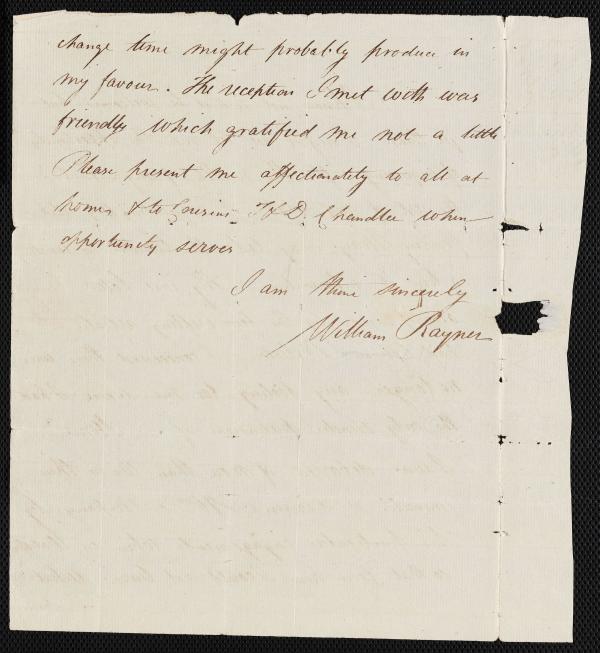 change time might probably produce in
my favour. The reception I met with was
friendly which gratified me not a little
Please present me affectionately to all at
home & to Cousins T & D. Chandlee when
opportunity serves
I am thine sincerely
William Rayner